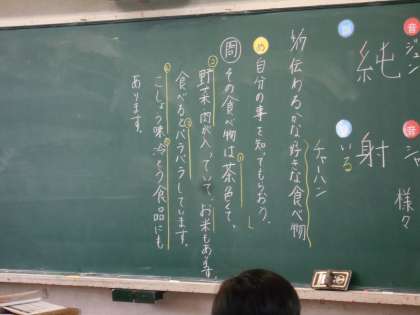 音 ジュン
純
音 シャ
様々
射
いる
4/17 伝わるかな好きな食べ物
チャーハン
め 自分の事を知ってもらおう。
問 その食べ物は茶色くて、
野菜、肉が入っていて、お米もあります。
食べるとパラパラしています。
こしょう味、冷とう食品にも
あります。